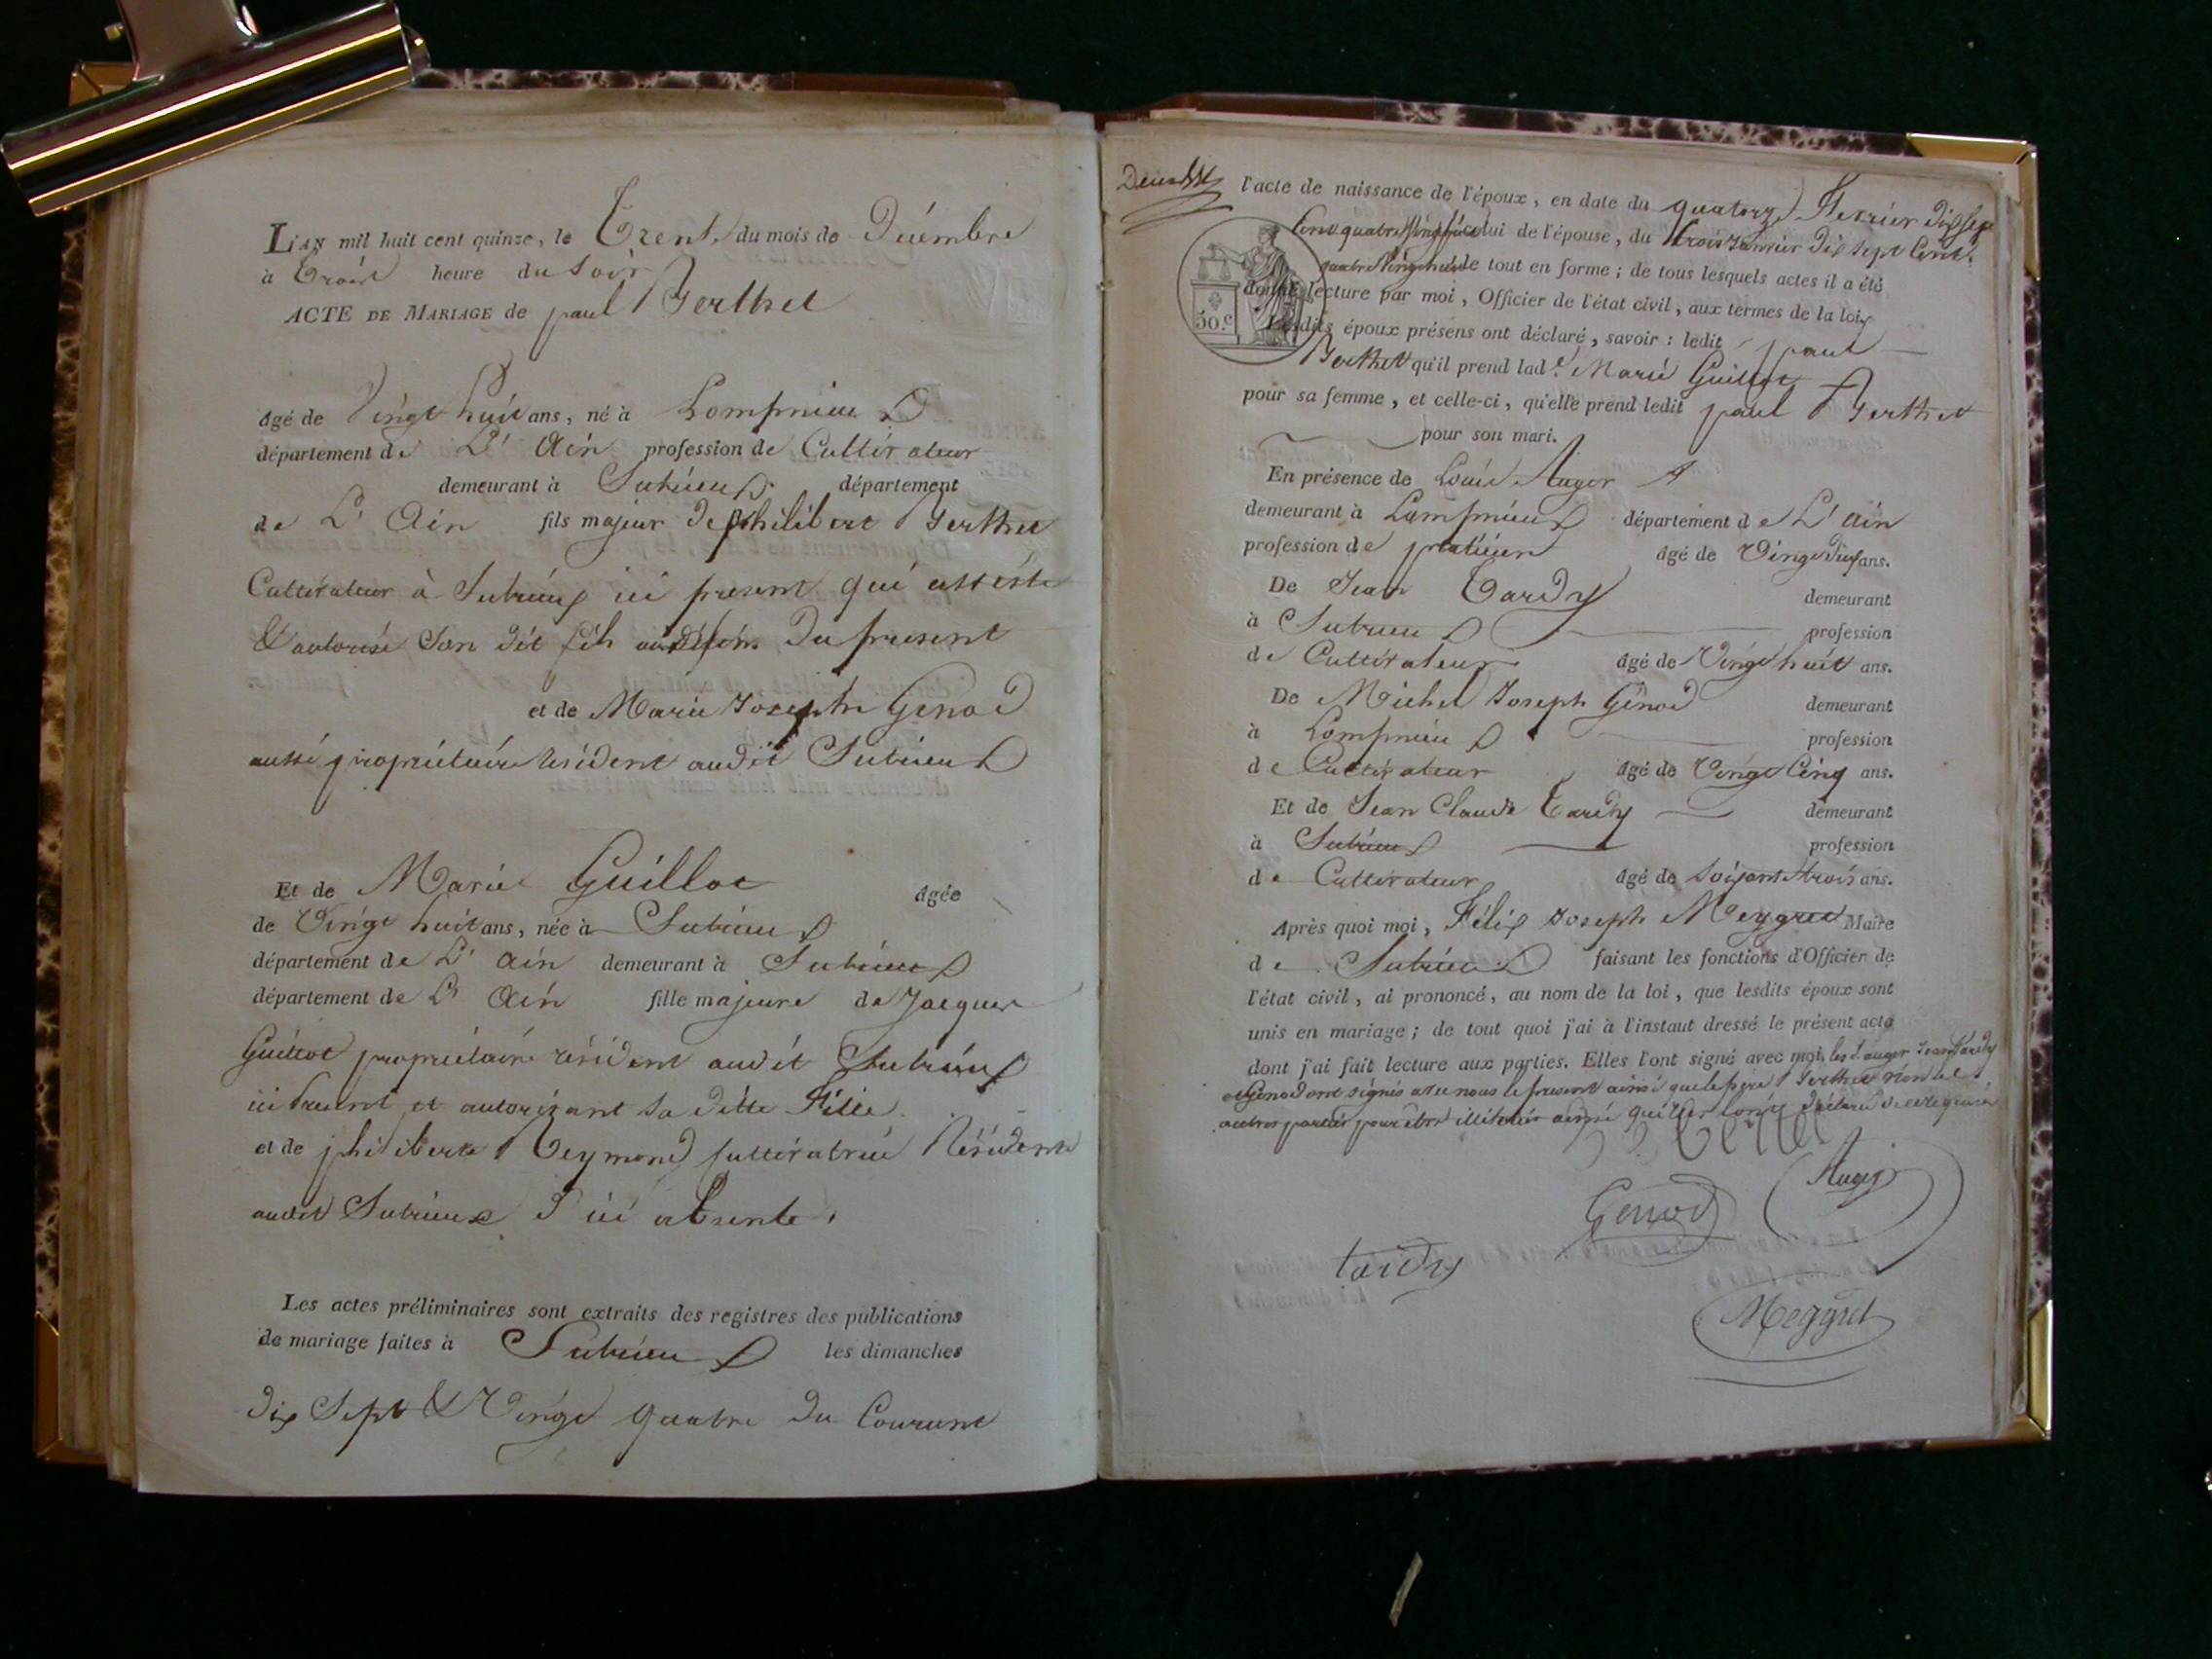 L'an mil huit cent quinze, le Trente du mois de Décembre
à Trois heure du soir
ACTE DE MARIAGE de paul Berthet
âgé de Vingt huit ans, né à Lompnieux
département de L'Ain profession de Cultivateur
demeurant à Sutrieux département
de L'Ain fils majeur de philibert Berthet
Cultivateur à Sutrieux ici present qui assiste
& autorise Son dit fils du present
et de Marie Josephte Genod
aussi propriétaire Résident audit Sutrieux
Et de Marie Guillot âgée
de Vingt huit ans, née à Sutrieux
département de L'Ain demeurant à Sutrieux
département de L'Ain fille majeure de Jacques
Guillot propriétaire résident audit Sutrieux
ici present et autorizant sa ditte Fille
et de philiberte Reymond Cultivatrice Résidente
audit Sutrieux d'ici absente.
Les actes préliminaires sont extraits des registres des publications
de mariage faites à Sutrieux les dimanches
dix Sept & Vingt quatre du Courant
l'acte de naissance de l'époux, en date du quatorze Fevrier dix sept
Cent quatre Vingt celui de l'épouse, du trois Janvier dix sept Cent
quatre Vingt huit le tout en forme; de tous lesquels actes il a été
donné lecture par moi, Officier de l'état civil, aux termes de la loi,
Lesdits époux présens ont déclaré, savoir: ledit paul
Berthet qu'il prend lad.e Marie Guillot
pour sa femme, et celle-ci, qu'elle prend ledit paul Berthet
pour son mari.
En présence de Louis Auger
demeurant à Lompnieux département de L'Ain
profession de praticien âgé de Vingt ans.
De Jean Tardy demeurant
à Sutrieux profession
de Cultivateur âgé de Vingt huit ans.
De Michel Joseph Genod demeurant
à Lompnieux profession
de Cultivateur âgé de Vingt Cinq ans.
Et de Jean Claude Tardy demeurant
à Sutrieux profession
de Cultivateur âgé de Soixante trois ans.
Après quoi moi, Félix Joseph Meygret Maire
de Sutrieux faisant les fonctions d'Officier de
l'état civil, ai prononcé, au nom de la loi, que lesdits époux sont
unis en mariage; de tout quoi j'ai à l'instant dressé le présent acte
dont j'ai fait lecture aux parties. Elles l'ont signé avec moi, les s. auger Jean Tardy
et Genod ont signés avec nous le present ainsi que le père Berthet non les
autres parties pour être illitérés ainsi qu'ils l'ont déclaré de ce requis
Genod
Auger
tardy
Meygret
50.c